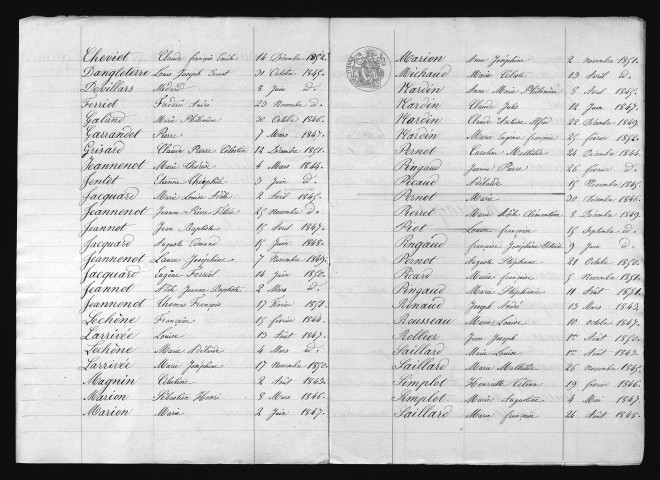 Cheviet Claude françois Emile 14 Décembre 1852.
Dangleterre Louis Joseph Ernest 31 Octobre 1845.
Devillars Médard 8 Juin id.
Ferriot Frédéric André 23 Novembre id.
Galand Marie Philomène 30 Octobre 1846.
Garrandet Pierre 7 Mars 1847.
Grisard Claude Pierre Célestin 12 Décembre 1851.
Jeannenot Marie Thérèse 4 Mars 1844.
Jentet Etienne Théophile 3 Juin id.
Jacquard Marie Louise Adèle 2 Avril 1845.
Jeannenot Jeanne Pierre 25 Novembre id.
Jeannot Jean Baptiste 15 Avril 1847.
Jacquard Auguste Edmond 15 Juin 1848.
Jeannenot Laure Joséphine 7 Novembre 1849.
Jacquard Eugène Ferréol 14 Juin 1850.
Jeannot Adèle Jeanne Baptiste 2 Mars id.
Jeannenot Thomas François 17 février 1851.
Lechêne Françoise 15 février 1844.
Larrivée Louise 13 Août 1847.
Lechêne Marie Adélaïde 4 Mars id.
Larrivée Marie Joséphine 17 Novembre 1850.
Magnin Célestine 2 Août 1843.
Marion Sébastien Henri 8 Mars 1846.
Marion Marie 2 Juin 1847.
Marion Anne Joséphine 2 novembre 1851.
Michaud Marie Céleste 13 Avril id.
Nardin Anne Marie Philomène 8 Avril 1845.
Nardin Claude Jules 12 Juin 1847.
Nardin Claude Antoine Alfred 22 Décembre 1849.
Nardin Marie Eugénie françoise 25 février 1852.
Pernot Caroline Mathilde 24 Décembre 1844.
Pingaud Jeanne Pierre 26 février id.
Picaud Adélaïde 15 Novembre 1845.
Pernot Marie 30 Décembre 1846.
Pierret Marie Adèle Clémentine 8 Décembre 1849.
Piot Louise françoise 15 Septembre id.
Pingaud françoise Joséphine 9 Juin id.
Pernot Auguste Stéphane 21 Octobre 1850.
Picard Marie françoise 5 Novembre 1851.
Pingaud Marie Stéphanie 11 Août 1851.
Renaud Joseph André 13 Mars 1843.
Rousseau Marie Louise 10 octobre 1847.
Rollier Jean Joseph 1er Août 1850.
Saillard Marie Louise 1er Août 1843.
Saillard Marie Mathilde 26 Novembre 1845.
Simplot Henriette 19 février 1846.
Simplot Marie Augustine 4 Mai 1847.
Saillard Marie françoise 24 Août 1848.